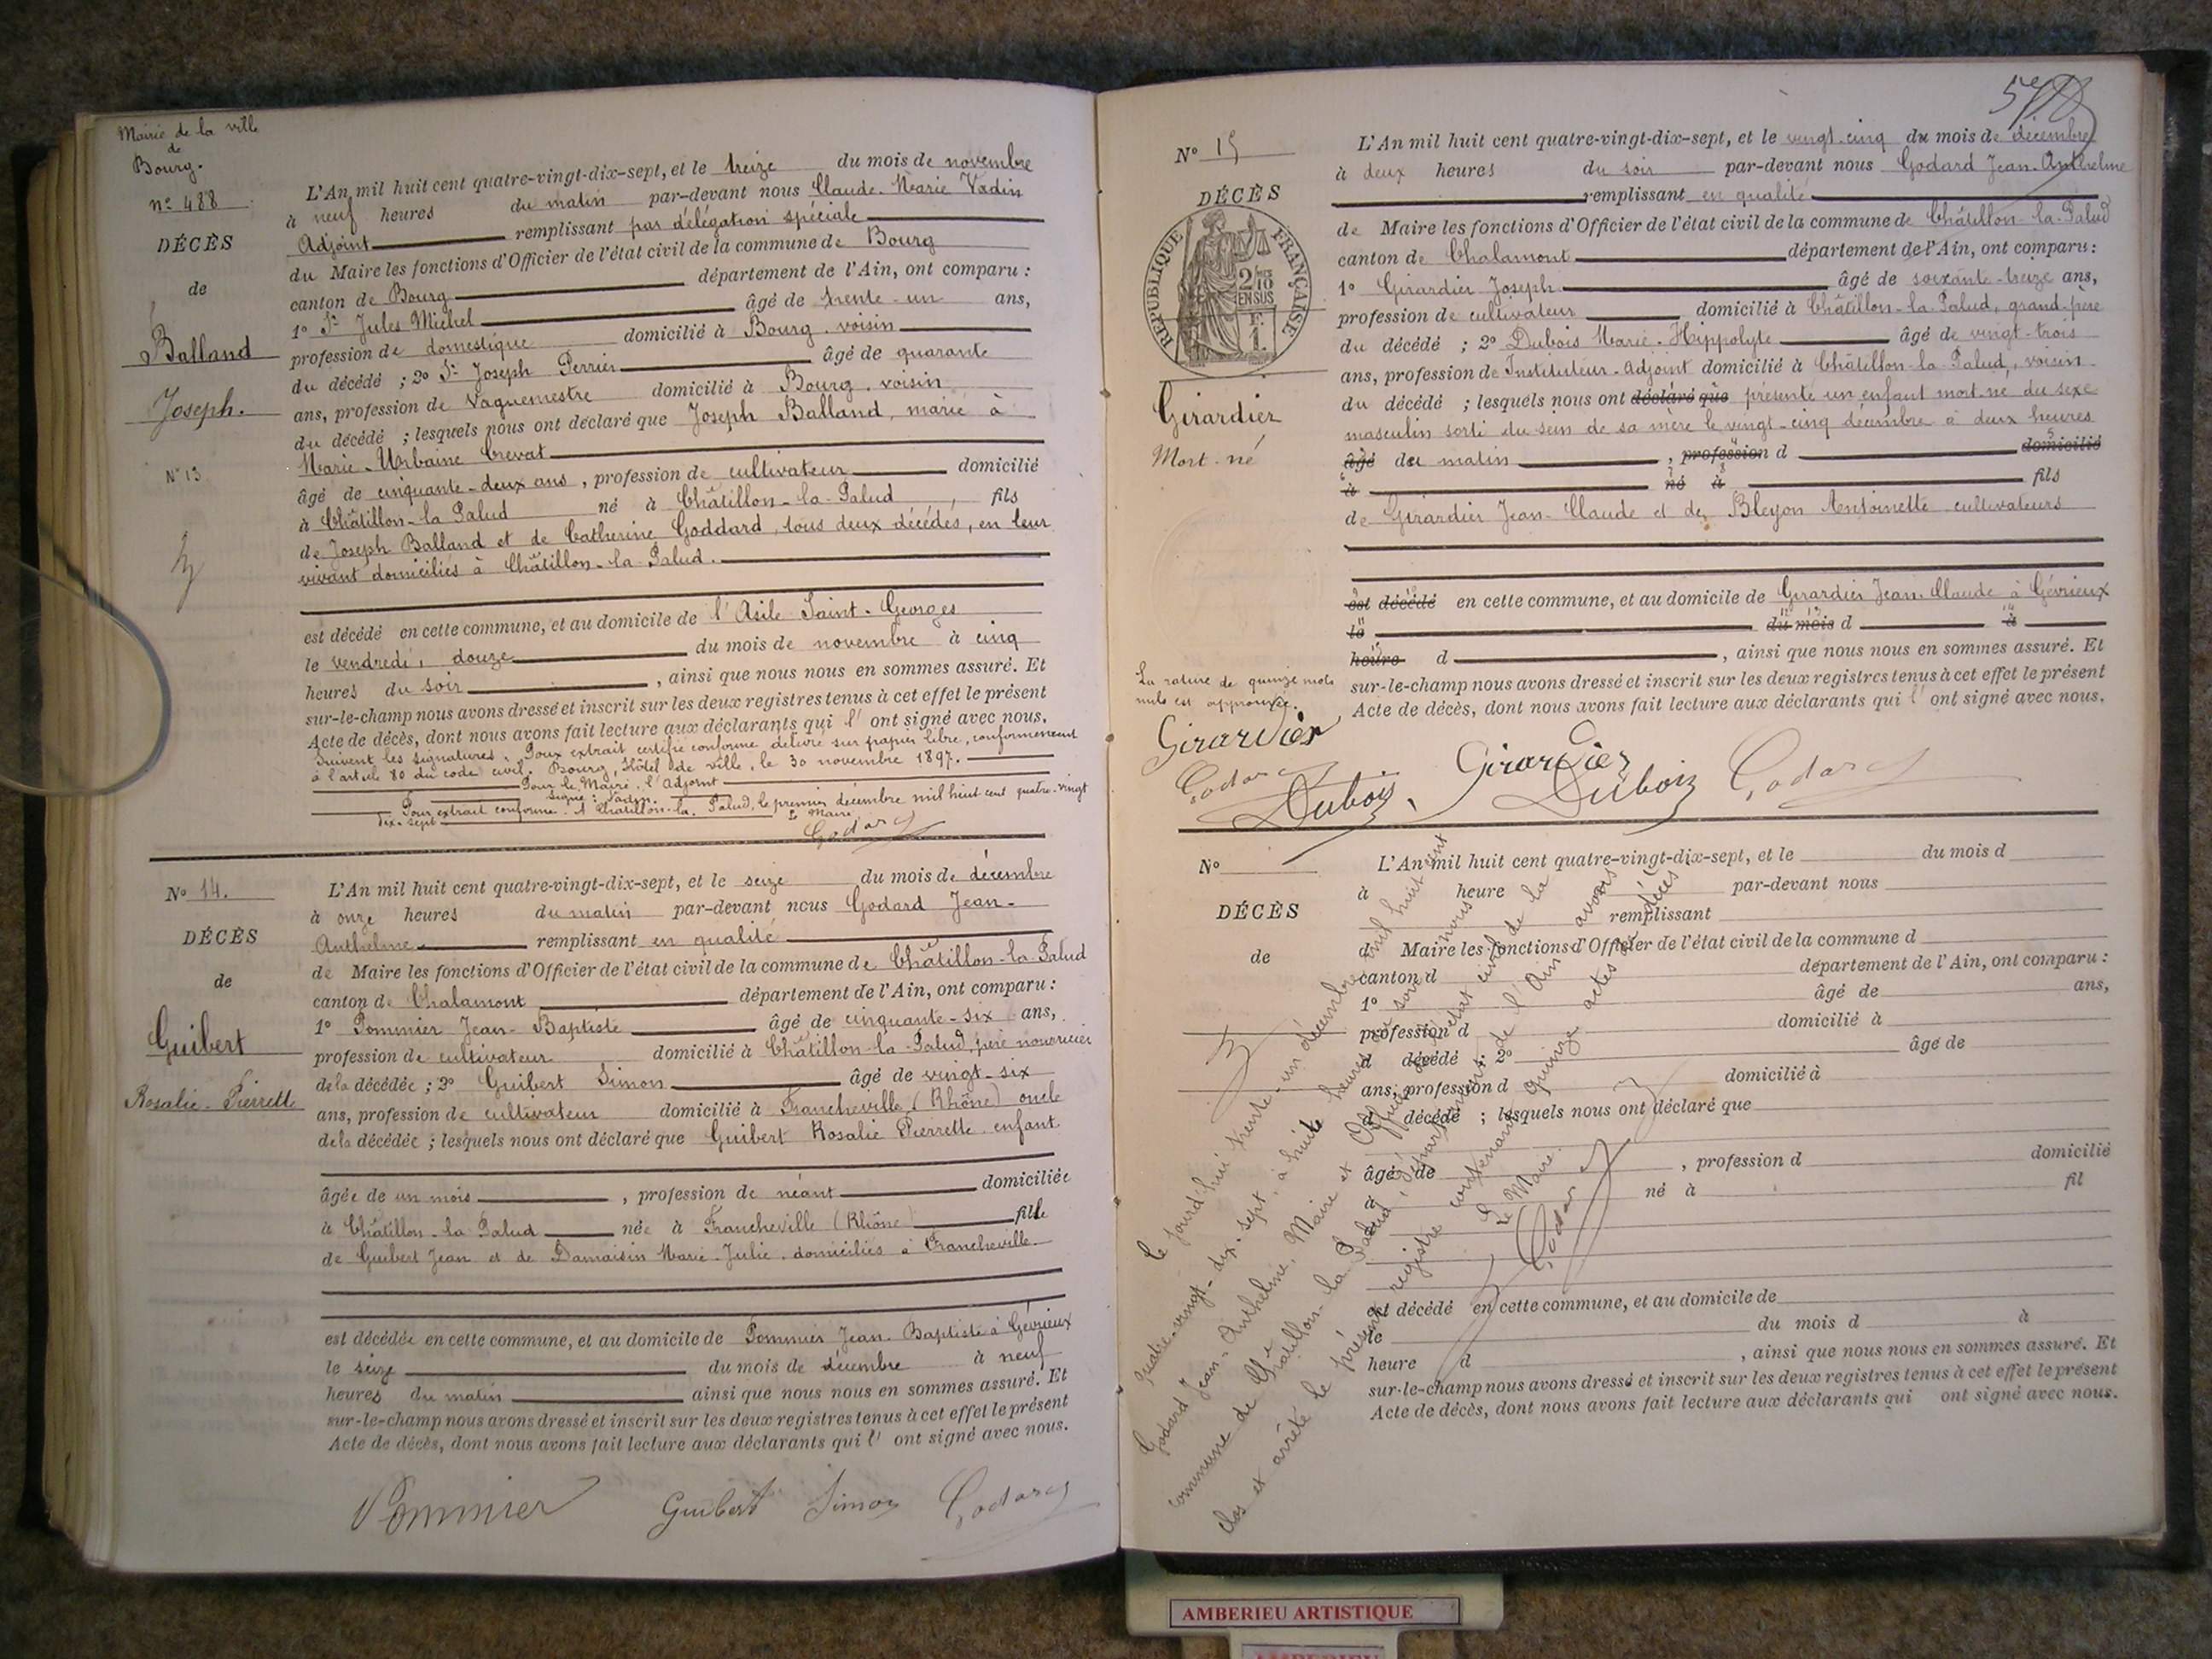 Mairie de la ville
de
Bourg.
nº 488
DÉCÈS
de
Balland
Joseph.
Nº 13
L'An mil huit cent quatre-vingt-dix-sept, et le treize du mois de novembre
à neuf heures du matin par-devant nous Claude-Marie Vadin
Adjoint remplissant par délégation spéciale
du Maire les fonctions d'Officier de l'état civil de la commune de Bourg
canton de Bourg département de l'Ain, ont comparu :
1º Sr Jules Michel âgé de trente-un ans,
profession de domestique domicilié à Bourg, voisin
du décédé ; 2º Sr Joseph Perrier âgé de quarante
ans, profession de Vaguemestre domicilié à Bourg, voisin
du décédé ; lesquels nous ont déclaré que Joseph Balland, marié à
Marie-Urbaine Crevat
âgé de cinquante-deux ans, profession de cultivateur domicilié
à Châtillon-la-Palud né à Châtillon-la-Palud, fils
de Joseph Balland et de Catherine Goddard, tous deux décédés, en leur
vivant domiciliés à Châtillon-la-Palud.
est décédé en cette commune, et au domicile de l'Asile Saint-Georges
le vendredi, douze du mois de novembre à cinq
heures du soir, ainsi que nous nous en sommes assuré. Et
sur-le-champ nous avons dressé et inscrit sur les deux registres tenus à cet effet le présent
Acte de décès, dont nous avons fait lecture aux déclarants qui l' ont signé avec nous.
Suivent les signatures. Pour extrait certifié conforme, délivré sur papier libre, conformément
à l'article 80 du code civil. Bourg, Hôtel de ville, le 30 novembre 1897.
Pour le Maire, l'Adjoint
Signé : Vadin.
Pour extrait conforme. A Châtillon-la-Palud, le premier décembre mil huit cent quatre-vingt
dix-sept Le Maire
Godard
Nº 14.
DÉCÈS
de
Guibert
Rosalie-Pierrette
L'An mil huit cent quatre-vingt-dix-sept, et le seize du mois de décembre
à onze heures du matin par-devant nous Godard Jean-
Anthelme remplissant en qualité
de Maire les fonctions d'Officier de l'état civil de la commune de Châtillon-la-Palud
canton de Chalamont département de l'Ain, ont comparu :
1º Pommier Jean-Baptiste âgé de cinquante-six ans,
profession de cultivateur domicilié à Châtillon-la-Palud, père nourricier
de la décédée ; 2º Guibert Simon âgé de vingt-six
ans, profession de cultivateur domicilié à Francheville (Rhône) oncle
de la décédée ; lesquels nous ont déclaré que Guibert Rosalie Pierrette, enfant
âgée de un mois, profession de néant domiciliée
à Châtillon-la-Palud née à Francheville (Rhône) fille
de Guibert Jean et de Damaisin Marie-Julie, domiciliés à Francheville
est décédée en cette commune, et au domicile de Pommier Jean-Baptiste à Gévrieux
le seize du mois de décembre à neuf
heures du matin ainsi que nous nous en sommes assuré. Et
sur-le-champ nous avons dressé et inscrit sur les deux registres tenus à cet effet le présent
Acte de décès, dont nous avons fait lecture aux déclarants qui l' ont signé avec nous.
Pommier Guibert Simon Godard
Nº 15
DÉCÈS
RÉPUBLIQUE FRANÇAISE
2/10 EN SUS
Girardier
Mort-né
L'An mil huit cent quatre-vingt-dix-sept, et le vingt-cinq du mois de décembre
à deux heures du soir par-devant nous Godard Jean-Anthelme
remplissant en qualité
de Maire les fonctions d'Officier de l'état civil de la commune de Châtillon-la-Palud
canton de Chalamont département de l'Ain, ont comparu :
1º Girardier Joseph âgé de soixante-treize ans,
profession de cultivateur domicilié à Châtillon-la-Palud, grand-père
du décédé ; 2º Dubois Marie-Hippolyte âgé de vingt-trois
ans, profession de Instituteur-Adjoint domicilié à Châtillon-la-Palud, voisin
du décédé ; lesquels nous ont déclaré que présenté un enfant mort-né du sexe
masculin sorti du sein de sa mère le vingt-cinq décembre à deux heures
âgé du matin, profession d domicilié
à né à fils
de Girardier Jean-Claude et de Bleyon Antoinette cultivateurs
est décédé en cette commune, et au domicile de Girardier Jean-Claude à Gévrieux
le du mois d à
heure d, ainsi que nous nous en sommes assuré. Et
sur-le-champ nous avons dressé et inscrit sur les deux registres tenus à cet effet le présent
Acte de décès, dont nous avons fait lecture aux déclarants qui l' ont signé avec nous.
La rature de quinze mots
nuls est approuvée.
Girardier
Godard
Dubois
Girardier
Dubois Godard
Nº
DÉCÈS
de
L'An mil huit cent quatre-vingt-dix-sept, et le du mois d
à heure par-devant nous
remplissant
d Maire les fonctions d'Officier de l'état civil de la commune d
canton d département de l'Ain, ont comparu :
1º âgé de ans,
profession d domicilié à
d décédé ; 2º âgé de
ans, profession d domicilié à
d décédé ; lesquels nous ont déclaré que
âgé de, profession d domicilié
à né à fil
est décédé en cette commune, et au domicile de
le du mois d à
heure d, ainsi que nous nous en sommes assuré. Et
sur-le-champ nous avons dressé et inscrit sur les deux registres tenus à cet effet le présent
Acte de décès, dont nous avons fait lecture aux déclarants qui ont signé avec nous.
Ce jourd'hui trente-un décembre mil huit cent
quatre-vingt-dix-sept, à huit heures du soir nous
Godard Jean-Anthelme, Maire et Officier de l'état civil de la
commune de Châtillon-la-Palud, département de l'Ain avons
clos et arrêté le présent registre contenant quinze actes de décès
Le Maire.
Godard
AMBERIEU ARTISTIQUE
AMBERIEU